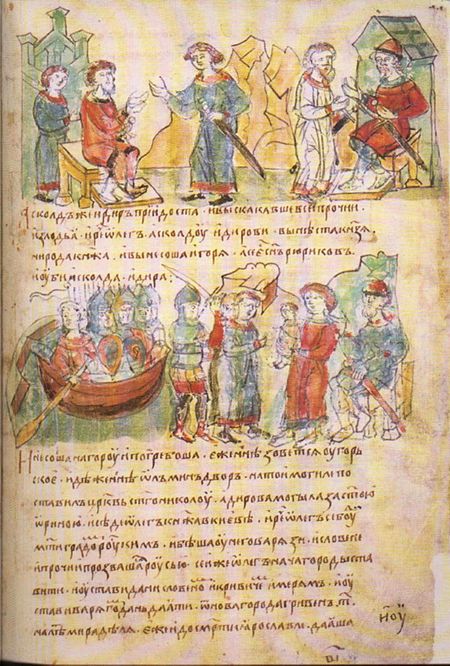 асколдъ же и диръ придоста · и выскакавше вси прочии
из лодьꙗ · и рⷱ҇е ѡлегъ асколдоу и дирови · вы нѣста кн҃зѧ
ни рода кнѧжа · и вынесоша игорѧ · а се е сн҃ъ рюриковъ ·
и оубиша асколда и дира :
И несоша на гороу и погребоша · еже нн҃ѣ зоветсѧ оугорь
ское · идѣже нн҃ѣ ѡлъминъ дворъ · на тои могиле по
ставилъ цр҃квь ст҃го николоу · а дирова могыла за ст҃ою
ѡриною · и сѣде ѡлегъ кнѧжа в киевѣ · и рⷱ҇е ѡлегъ се боуⷣ
мт҃и градоⷨ роускимъ · и бѣша оу него варѧзи · и словене
и прочи прозвашасѧ роусью · сеи же ѡлегъ нача городы ста
вити · и оустави дани словеноⷨ и кривичеⷨ и мерѧмъ · и оу
стави варѧгоⷨ дань даѧти · ѿ новагорода гривенъ т҃
на лѣⷮ мира дѣлѧ · еже и до см҃рти ꙗрославлѧ даꙗша